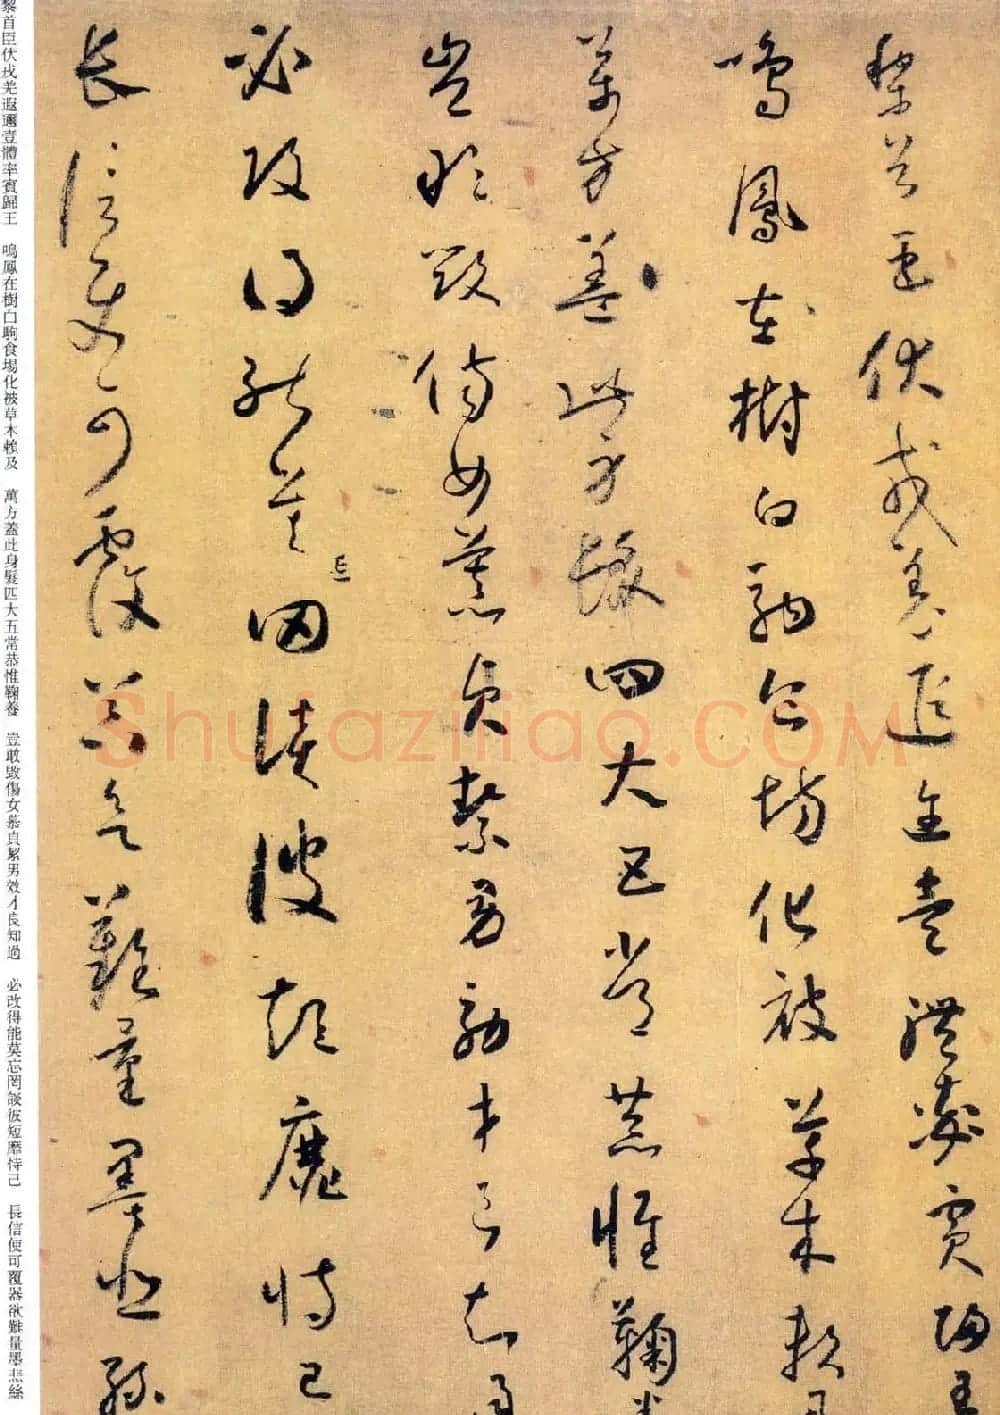 黎首臣伏戎羌遐邇壹體率賓歸王
鳴鳳在樹白駒食場化被草木賴及
萬方蓋此身髮四大五常恭惟鞠養
豈敢毀傷女慕貞絜男效才良知過
必改得能莫忘罔談彼短靡恃己
長信使可覆器欲難量墨悲絲
黎首臣伏戎羌遐邇壹體率賓歸王 鳴鳳在樹白駒食場化被草木賴及 萬方蓋此身髮四大五常恭惟鞠養 豈敢毀傷女慕貞絜男效才良知過 必改得能莫忘罔談彼短靡恃己 長信使可覆器欲難量墨悲絲
Shufaziliao.COM